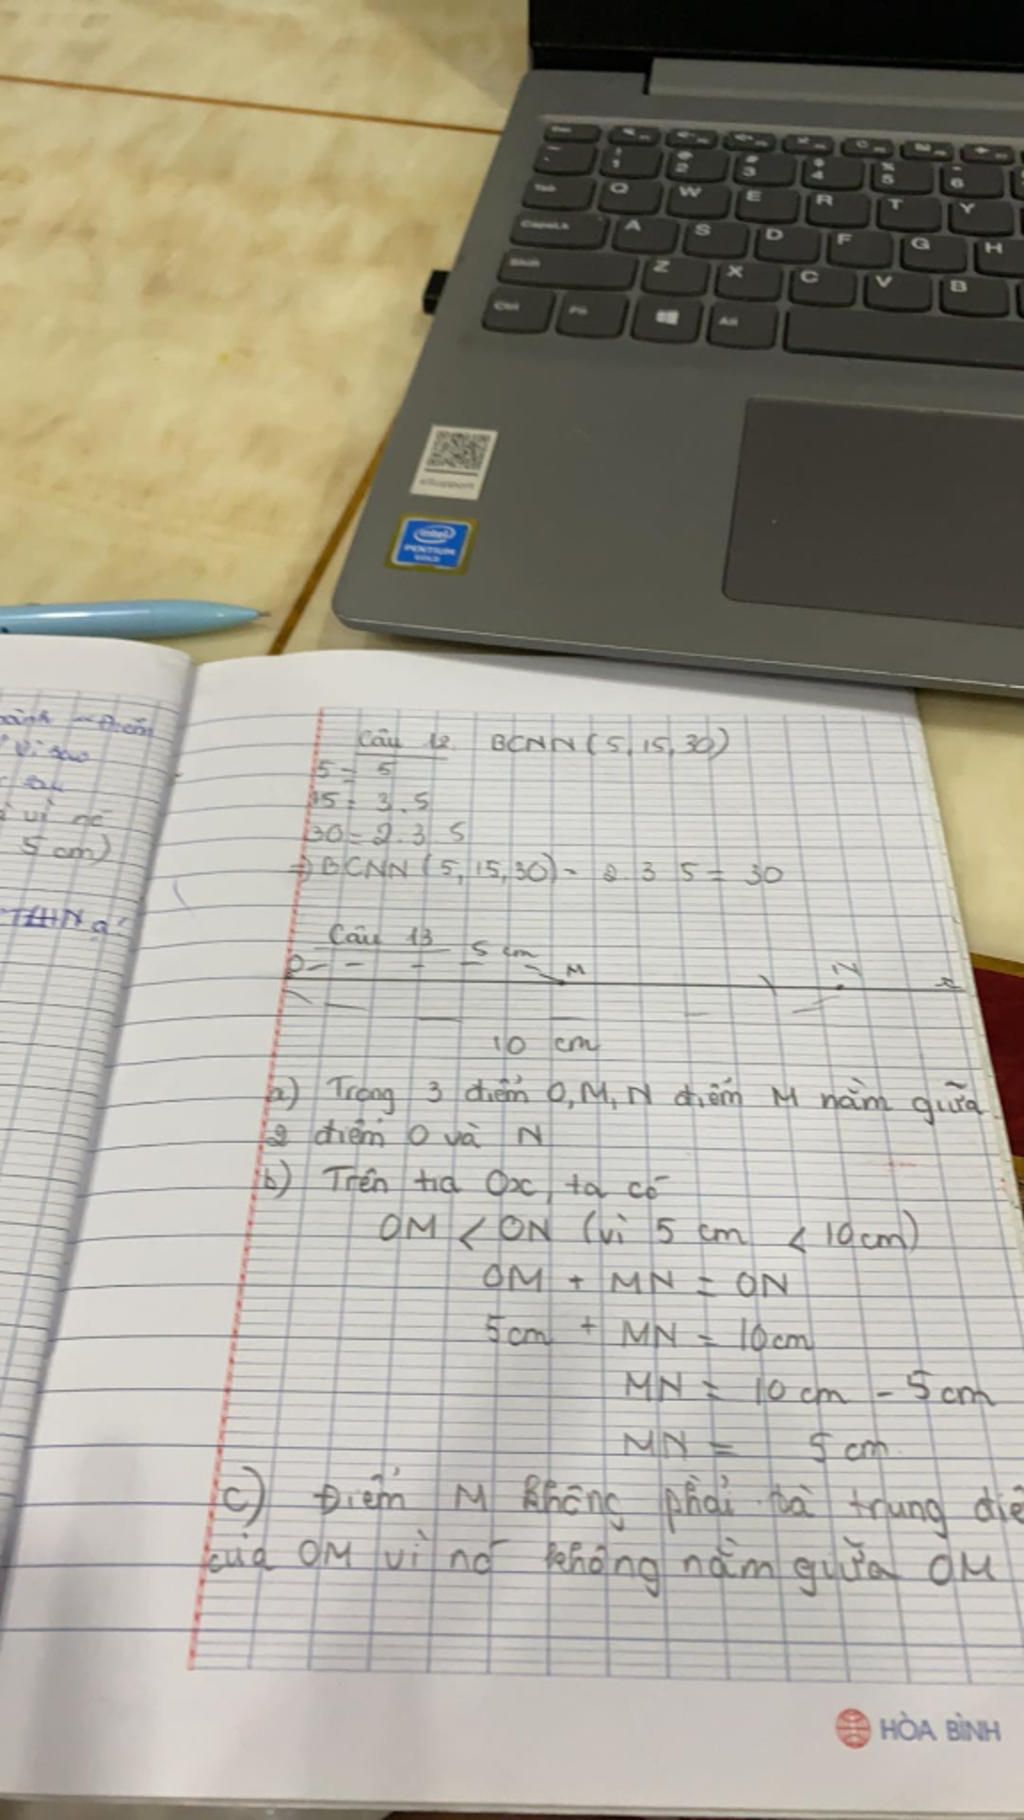 1 2 3 4 5 6
Tab Q W E R T Y
A S D F G H
Shift Z X C V B
Ctrl Fn Alt
eSupport
intel
PENTIUM
GOLD
vì sao
5 cm)
Câu 12 BCNN (5, 15, 30)
5 = 5
15 = 3.5
30 = 2.3 5
=> BCNN (5, 15, 30) - 2 3 5 = 30
Câu 13 5 cm
O M N x
10 cm
a) Trong 3 điểm O, M, N điểm M nằm giữa
2 điểm O và N
b) Trên tia Ox, ta có
OM < ON (vì 5 cm < 10 cm)
OM + MN = ON
5cm + MN = 10cm
MN = 10 cm - 5 cm
MN = 5 cm
c) Điểm M không phải là trung điể
của OM vì nó không nằm giữa OM
HÒA BÌNH